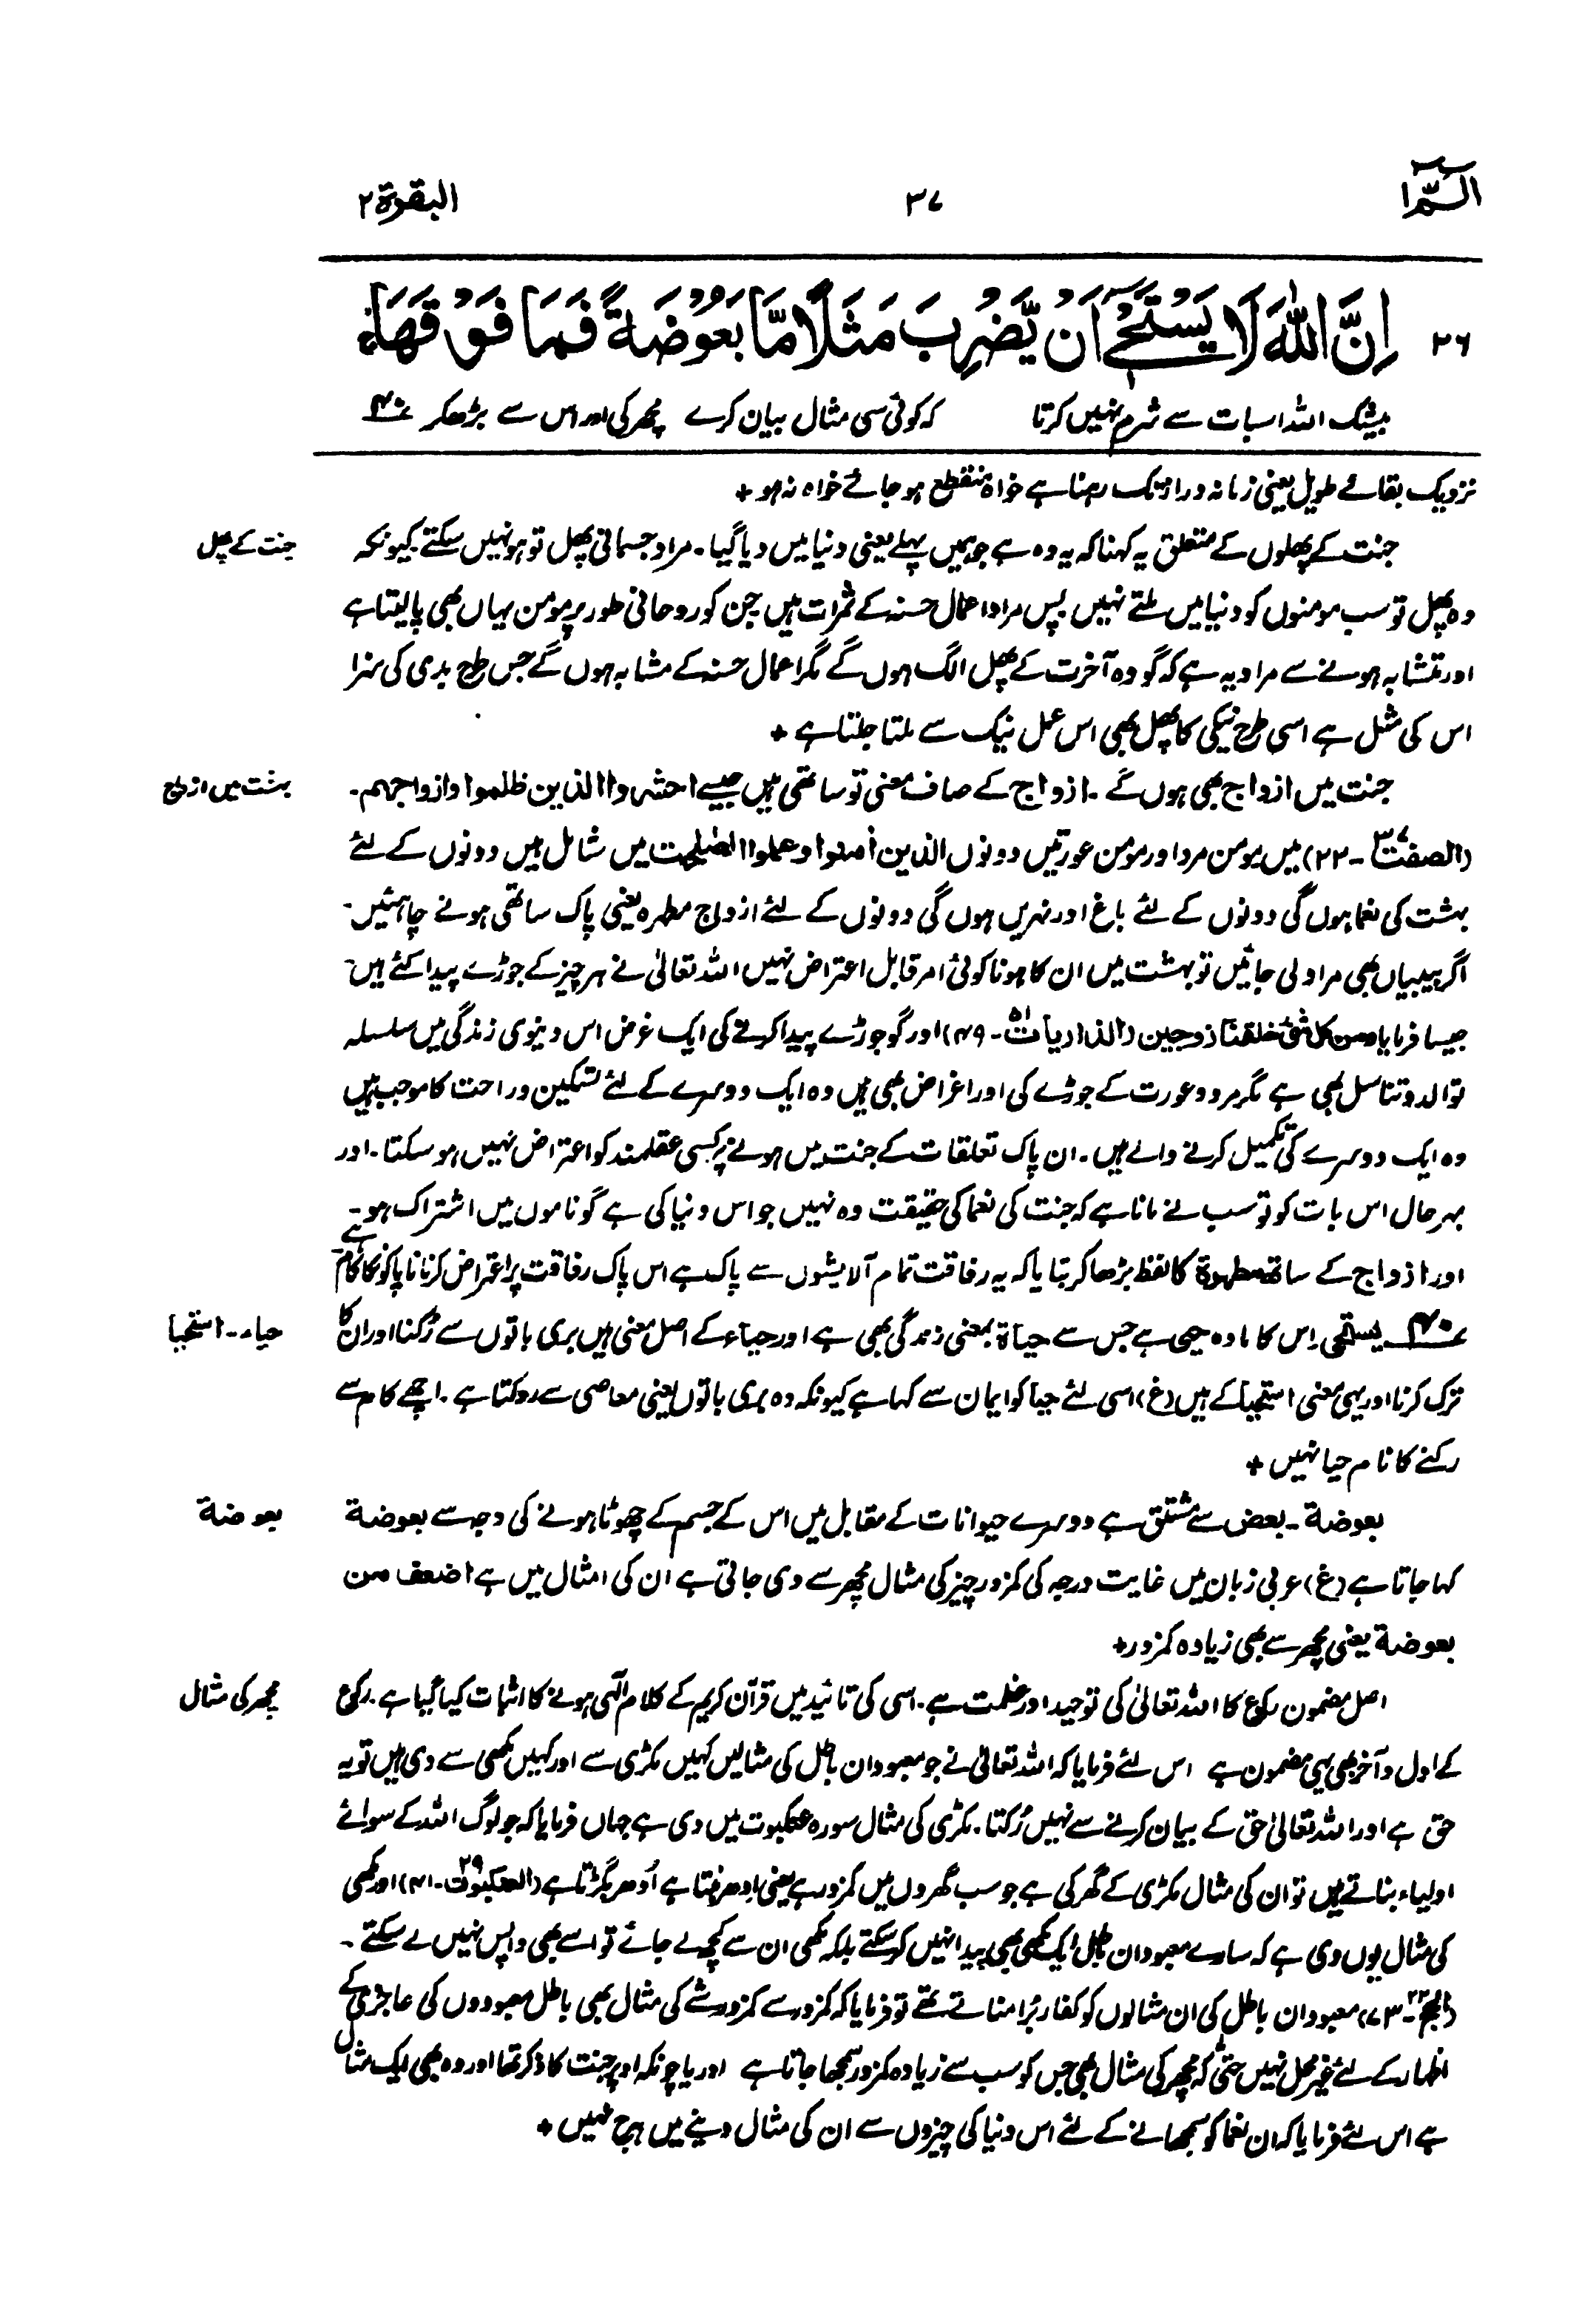 الٓمّٓ ۱
۳۷
البقرة ۲
۲۶ اِنَّ اللّٰهَ لَا يَسْتَحْيٖۤ اَنْ يَّضْرِبَ مَثَلًا مَّا بَعُوْضَةً فَمَا فَوْقَهَا
بیشک اللہ اس بات سے شرم نہیں کرتا کہ کوئی سی مثال بیان کرے مچھر کی اور اس سے بڑھکر ۴۰
نزدیک بقائے طویل یعنی زمانہ دراز تک رہنا ہے خواہ منقطع ہو جائے خواہ نہ ہو +
جنت کے پھل
جنت کے پھلوں کے متعلق یہ کہنا کہ یہ وہ ہے جو ہمیں پہلے یعنی دنیا میں دیا گیا۔ مراد جسمانی پھل تو ہو نہیں سکتے کیونکہ
وہ پھل تو سب مومنوں کو دنیا میں ملتے نہیں پس مراد اعمال حسنہ کے ثمرات ہیں جن کو روحانی طور پر مومن یہاں بھی پا لیتا ہے
اور متشابہ ہونے سے مراد یہ ہے کہ گو وہ آخرت کے پھل الگ ہوں گے مگر اعمال حسنہ کے مشابہ ہوں گے جس طرح بدی کی سزا
اس کی مثل ہے اسی طرح نیکی کا پھل بھی اس عمل نیک سے ملتا جلتا ہے +
بہشت میں ازواج
جنت میں ازواج بھی ہوں گے۔ ازواج کے صاف معنی تو ساتھی ہیں جیسے احشروا الذین ظلموا وازواجہم۔
(الصفت ۳۷۔۲۲) میں مومن مرد اور مومن عورتیں دونوں الذین اٰمنوا وعملوا الصٰلحٰت میں شامل ہیں دونوں کے لئے
بہشت کی نعما ہوں گی دونوں کے لئے باغ اور نہریں ہوں گی دونوں کے لئے ازواج مطہرہ یعنی پاک ساتھی ہونے چاہئیں۔
اگر بیبیاں بھی مراد لی جائیں تو بہشت میں ان کا ہونا کوئی امر قابل اعتراض نہیں اللہ تعالٰی نے ہر چیز کے جوڑے پیدا کئے ہیں۔
جیسا فرمایا ومن کل شئ خلقنا زوجین (الذاریات ۵۱۔۴۹) اور گو جوڑے پیدا کرنے کی ایک غرض اس دنیوی زندگی میں سلسلہ
توالد و تناسل بھی ہے مگر مرد و عورت کے جوڑے کی اور اغراض بھی ہیں وہ ایک دوسرے کے لئے تسکین و راحت کا موجب ہیں
وہ ایک دوسرے کی تکمیل کرنے والے ہیں۔ ان پاک تعلقات کے جنت میں ہونے پر کسی عقلمند کو اعتراض نہیں ہو سکتا۔ اور
بہر حال اس بات کو تو سب نے مانا ہے کہ جنت کی نعما کی حقیقت وہ نہیں جو اس دنیا کی ہے گو ناموں میں اشتراک ہو۔
اور ازواج کے ساتھ مطہرة کا لفظ بڑھا کر بتایا کہ یہ رفاقت تمام آلایشوں سے پاک ہے اس پاک رفاقت پر اعتراض کرنا ناپاکوں کا کام ہے
حیاء۔ استحیا
۴۰ یستحی اس کا مادہ حیی ہے جس سے حیاة بمعنی زندگی بھی ہے اور حیاء کے اصل معنی ہیں بری باتوں سے رُکنا اور ان کا
ترک کرنا اور یہی معنی استحیا کے ہیں (غ) اسی لئے حیا کو ایمان سے کہا ہے کیونکہ وہ بری باتوں یعنی معاصی سے روکتا ہے۔ اچھے کام سے
رکنے کا نام حیا نہیں +
بعوضة
بعوضة۔ بعض سے مشتق ہے دوسرے حیوانات کے مقابل میں اس کے جسم کے چھوٹا ہونے کی وجہ سے بعوضة
کہا جاتا ہے (غ) عربی زبان میں غایت درجہ کی کمزور چیز کی مثال مچھر سے دی جاتی ہے ان کی امثال میں ہے اضعف من
بعوضة یعنی مچھر سے بھی زیادہ کمزور +
مچھر کی مثال
اصل مضمون رکوع کا اللہ تعالٰی کی توحید اور عظمت ہے۔ اسی کی تائید میں قرآن کریم کے کلام الٰہی ہونے کا اثبات کیا گیا ہے۔ رکوع
کے اول و آخر بھی یہی مضمون ہے اس لئے فرمایا کہ اللہ تعالٰی نے جو معبودان باطل کی مثالیں کہیں مکڑی سے اور کہیں مکھی سے دی ہیں تو یہ
حق ہے اور اللہ تعالٰی حق کے بیان کرنے سے نہیں رُکتا۔ مکڑی کی مثال سورہ عنکبوت میں دی ہے جہاں فرمایا کہ جو لوگ اللہ کے سوائے
اولیاء بناتے ہیں تو ان کی مثال مکڑی کے گھر کی ہے جو سب گھروں میں کمزور ہے یعنی اِدھر بنتا ہے اُدھر بگڑتا ہے (العنکبوت ۲۹۔۴۱) اور مکھی
کی مثال یوں دی ہے کہ سارے معبودان باطل ایک مکھی بھی پیدا نہیں کر سکتے بلکہ مکھی ان سے کچھ لے جائے تو اسے بھی واپس نہیں لے سکتے۔
(الحج ۲۲۔۷۳) معبودان باطل کی ان مثالوں کو کفار بُرا مناتے تھے تو فرمایا کہ کمزور سے کمزور شے کی مثال بھی باطل معبودوں کی عاجزی کے
اظہار کے لئے غیر محل نہیں حتیٰ کہ مچھر کی مثال بھی جس کو سب سے زیادہ کمزور سمجھا جاتا ہے اور یا چونکہ اوپر جنت کا ذکر تھا اور وہ بھی ایک مثال
ہے اس لئے فرمایا کہ ان نعما کو سمجھانے کے لئے اس دنیا کی چیزوں سے ان کی مثال دینے میں ہرج نہیں +